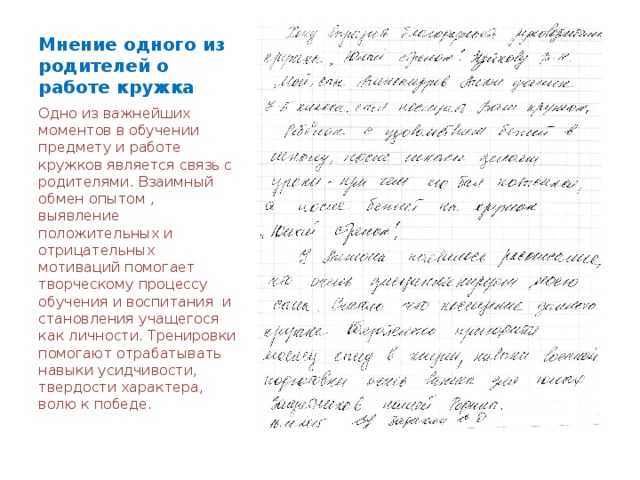 Мнение одного из
родителей о
работе кружка
Одно из важнейших
моментов в обучении
предмету и работе
кружков является связь с
родителями. Взаимный
обмен опытом ,
выявление
положительных и
отрицательных
мотиваций помогает
творческому процессу
обучения и воспитания и
становления учащегося
как личности. Тренировки
помогают отрабатывать
навыки усидчивости,
твердости характера,
волю к победе.
Хочу выразить благодарность руководителю
кружка „Юный стрелок".
Мой сын Александров Антон ученик
7 Б класса, стал посещать Ваш кружок.
Ребёнок с удовольствием бежит в
школу, после школы делает
уроки - при чем его бал повысился,
а после бежит на кружок
„Юный стрелок".
У Антона появилось расписание,
что очень дисциплинирует моего
сына. Считаю что посещение данного
кружка обязательно пригодится
моему сыну в жизни, навыки военной
подготовки очень важны для юных
Защитников нашей Родины.